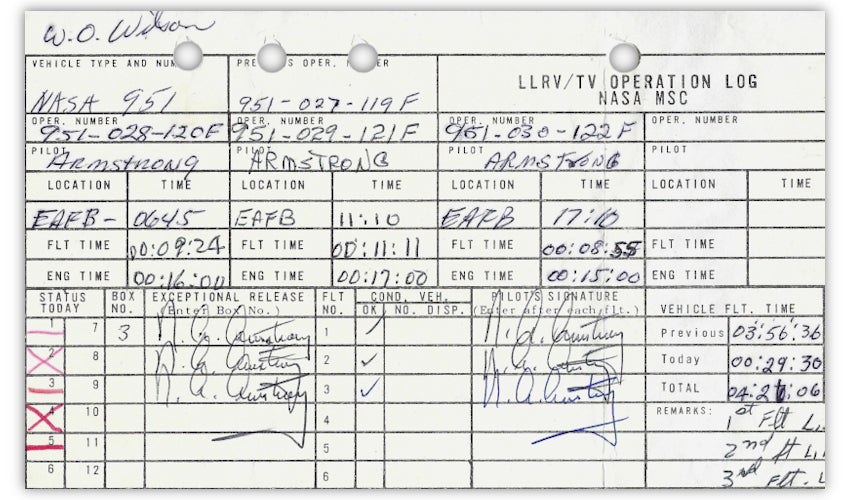 W. O. Wilson
VEHICLE TYPE AND NUM
NASA 951
PRE S OPER. ER
951-027-119F
LLRV/TV OPERATION LOG
NASA MSC
OPER. NUMBER OPER. NUMBER OPER. NUMBER OPER. NUMBER
951-028-120F 951-029-121F 951-030-122F
PILOT PILOT PILOT PILOT
Armstrong ARMSTRONG ARMSTRONG
LOCATION TIME LOCATION TIME LOCATION TIME LOCATION TIME
EAFB- 0645 EAFB 11:10 EAFB 17:10
FLT TIME 00:09:24 FLT TIME 00:11:11 FLT TIME 00:08:55 FLT TIME
ENG TIME 00:16:00 ENG TIME 00:17:00 ENG TIME 00:15:00 ENG TIME
STATUS TODAY BOX NO. EXCEPTIONAL RELEASE (Enter Box No.) FLT NO. COND. VEH. OK NO. DISP. PILOT'S SIGNATURE (Enter after each flt.) VEHICLE FLT. TIME
1 7 3 N. A. Armstrong 1 ✓ N. A. Armstrong Previous 03:56:36
2 8 N. A. Armstrong 2 ✓ N. A. Armstrong Today 00:29:30
3 9 N. A. Armstrong 3 ✓ N. A. Armstrong TOTAL 04:26:06
4 10 4 REMARKS: 1st Flt L
5 11 5 2nd flt L
6 12 6 3rd Flt. L